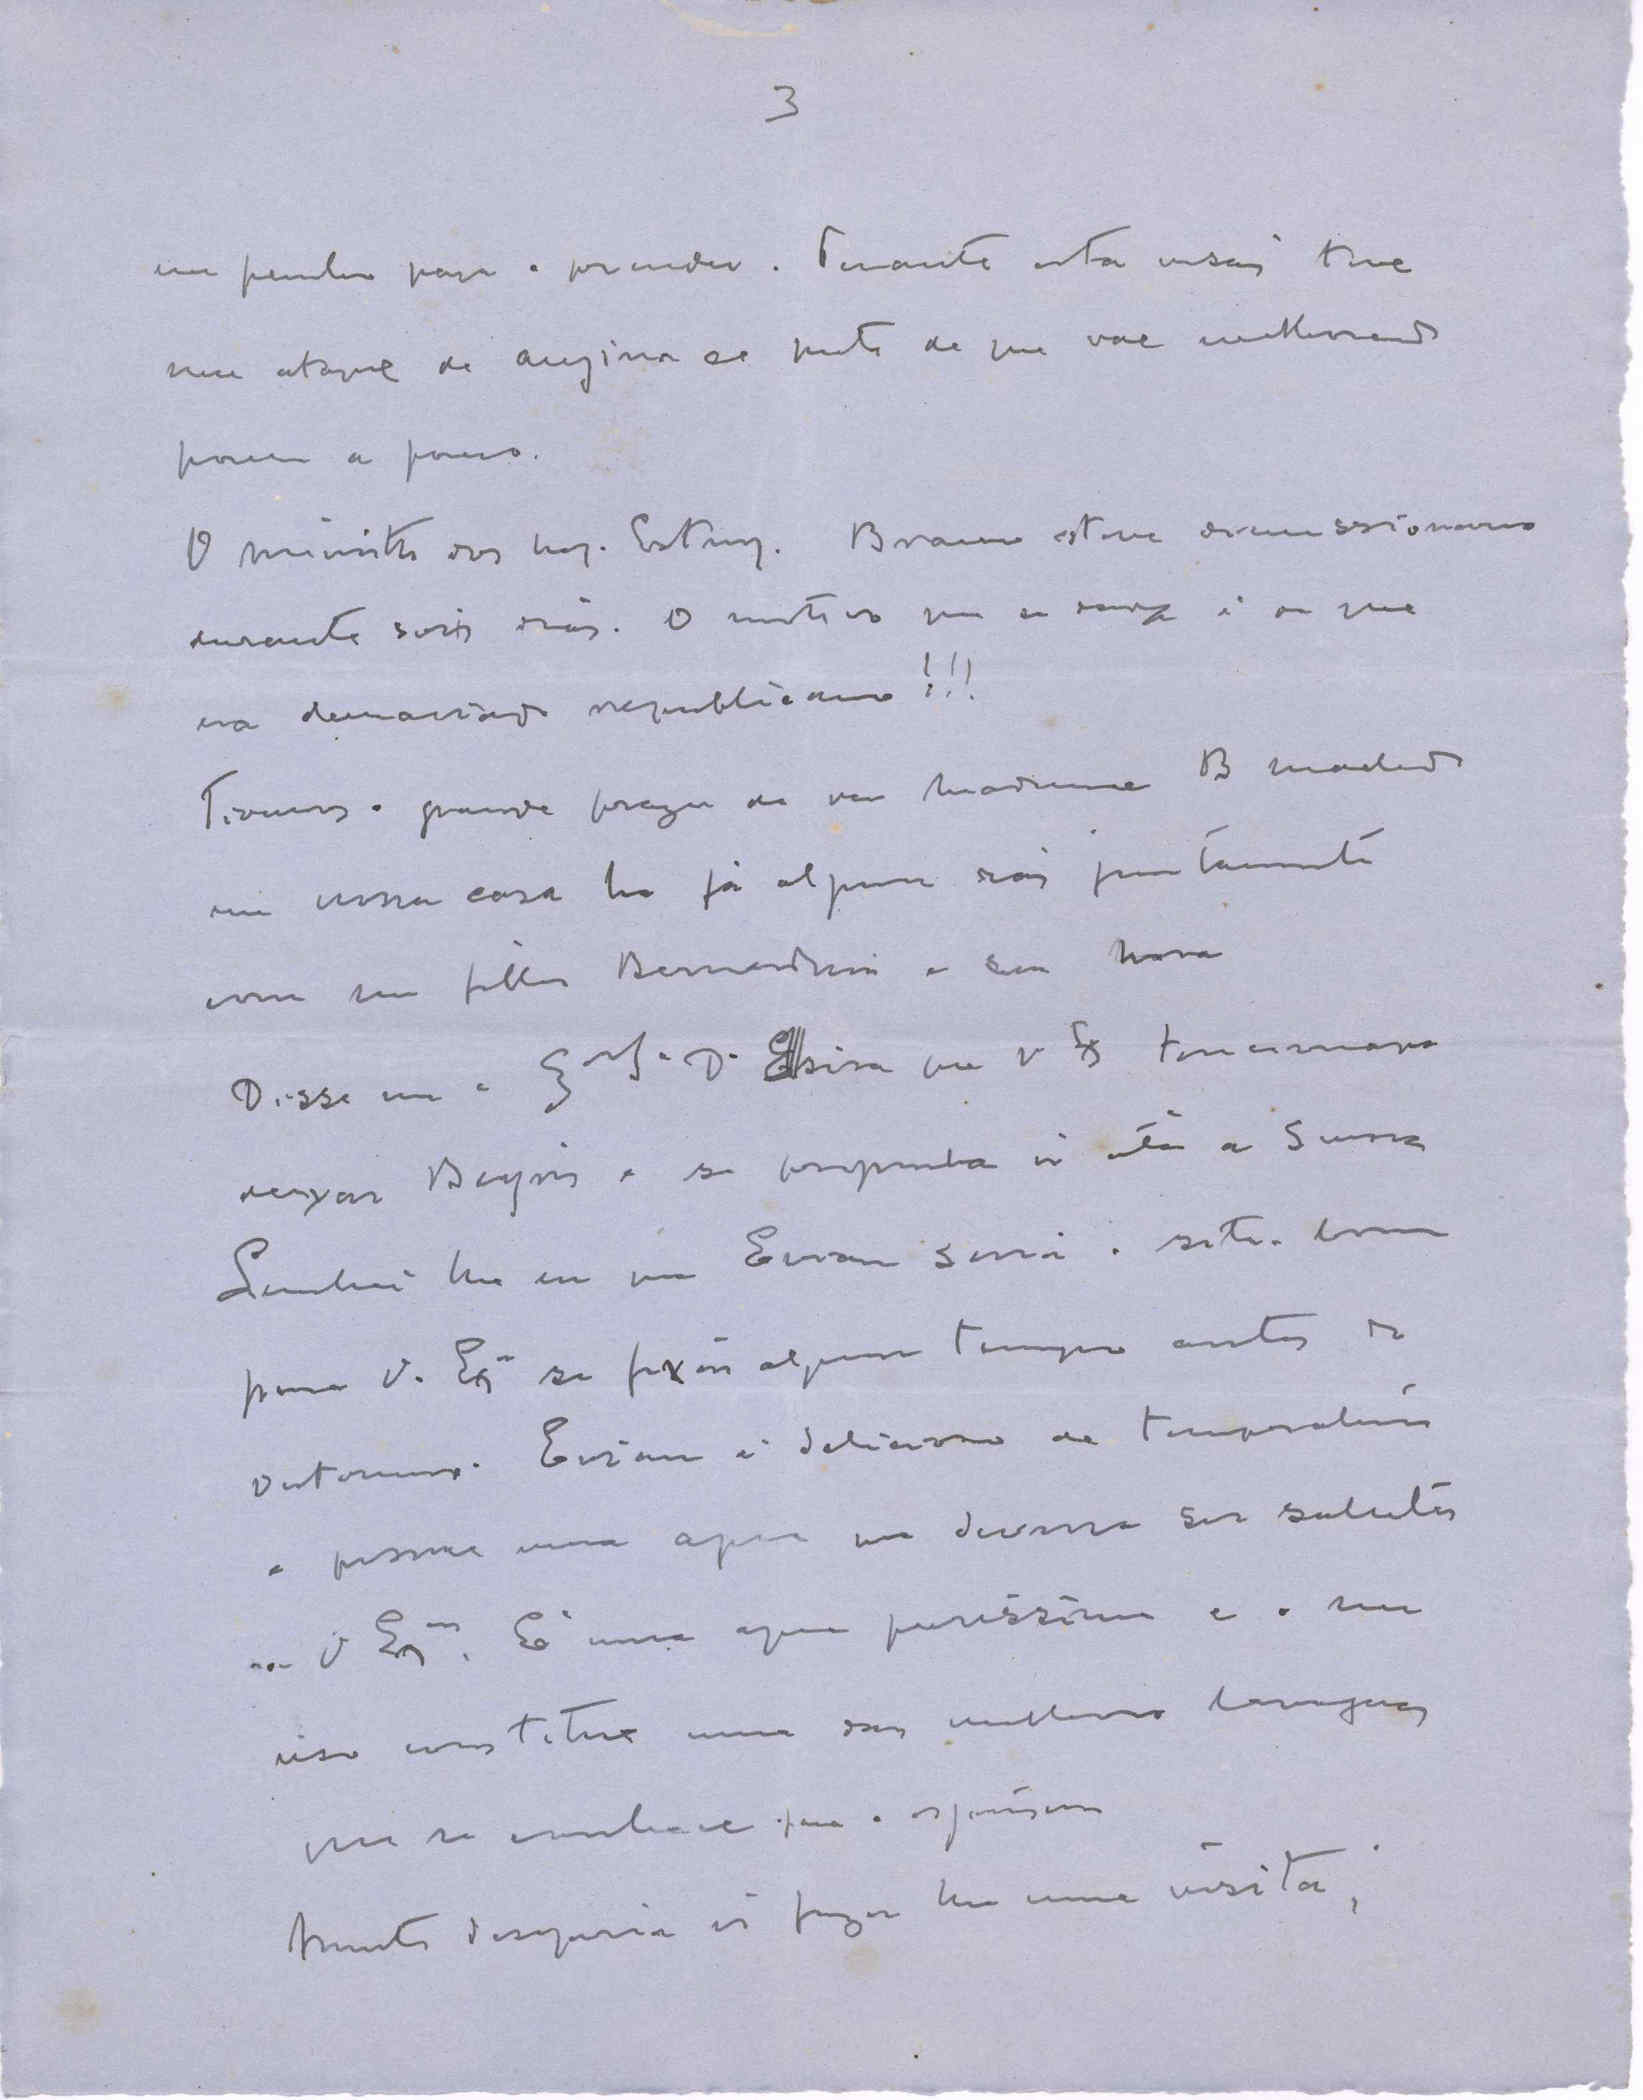 3
um para o prender. Perante esta visão teve
um ataque de angina de peito de que vae melhorando
pouco a pouco.
O ministro dos neg. Estrang. Bramão esteve demissionario
durante seis dias. O motivo que se é de que
era demasiado republicano!!!
Tivemos o grande prazer de ver Madame B Machado
em nossa casa ha já alguns dias juntamente
com seu filho Bernardino e sua nora
Disse me a D. que V Ex tencionava
deixar e se propunha ir até a Suissa
Lembrei lhe eu que Evian seria o sitio bom
para V. Exª se fixar algum tempo antes do
outomno. Evian é delicioso de temperatura
e possue uma agua que deveria ser
a V Exª. É uma agua purissima e o seu
uso constitue uma das melhores lavagens
que se conhece para o organismo
Muito desejaria ir fazer lhe uma visita;